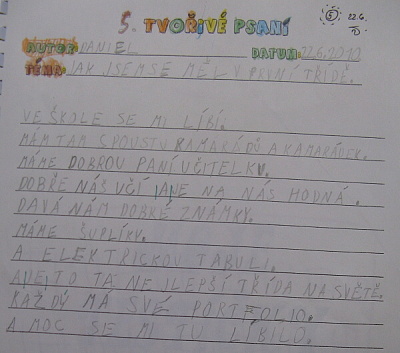 5. TVOŘIVÉ PSANÍ
5 22.6.
AUTOR: DANIEL DATUM: 22.6.2010
TÉMA: JAK JSEM SE MĚL V PRVNÍ TŘÍDĚ.
VE ŠKOLE SE MI LÍBÍ.
MÁM TAM SPOUSTU KAMARÁDŮ A KAMARÁDEK.
MÁME DOBROU PANÍ UČITELKU.
DOBŘE NÁS UČÍ JE NA NÁS HODNÁ.
DÁVÁ NÁM DOBRÉ ZNÁMKY.
MÁME ŠUPLÍKY.
A ELEKTRICKOU TABULI.
A JE TO TA NEJLEPŠÍ TŘÍDA NA SVĚTĚ.
KAŽDÝ MÁ SVÉ PORTFOLIO.
A MOC SE MI TU LÍBILO.